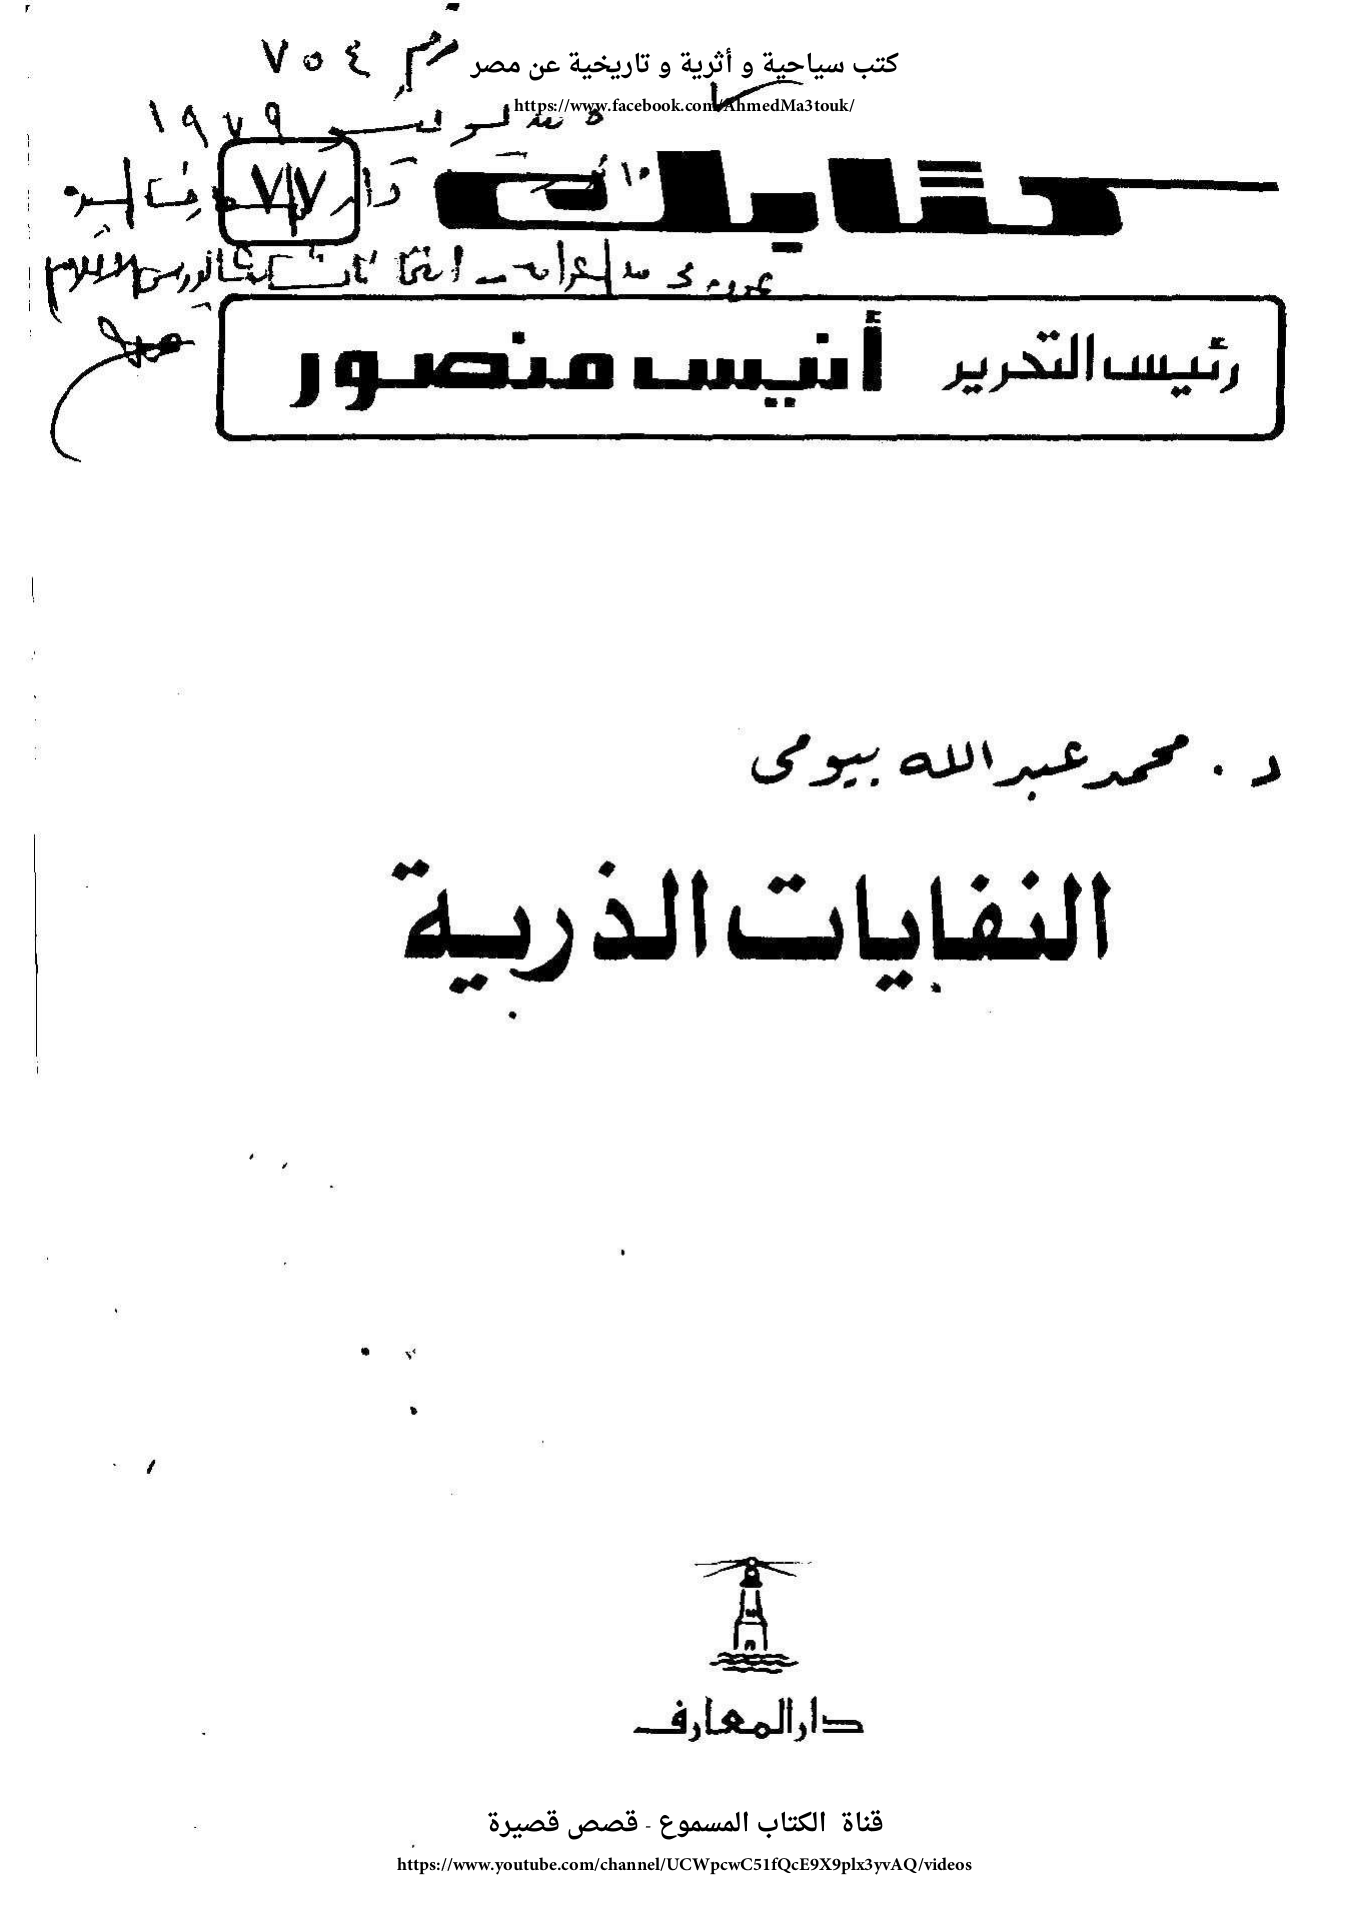 كتب سياحية و أثرية و تاريخية عن مصر
https://www.facebook.com/AhmedMa3touk/
٧٥٤
١٩٧٩
كتابك
٧٧
رئيس التحرير أنيس منصور
د. محمد عبدالله بيومى
النفايات الذرية
دارالمعارف
قناة الكتاب المسموع - قصص قصيرة
https://www.youtube.com/channel/UCWpcwC51fQcE9X9plx3yvAQ/videos